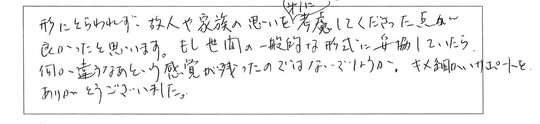 形にとらわれず 故人や家族の思いを特に考慮してくださった点が
良かったと思います。もし世間の一般的な形式に妥協していたら
何か違うなあという感覚が残ったのではないでしょうか。キメ細かいサポートを
ありがとうございました。